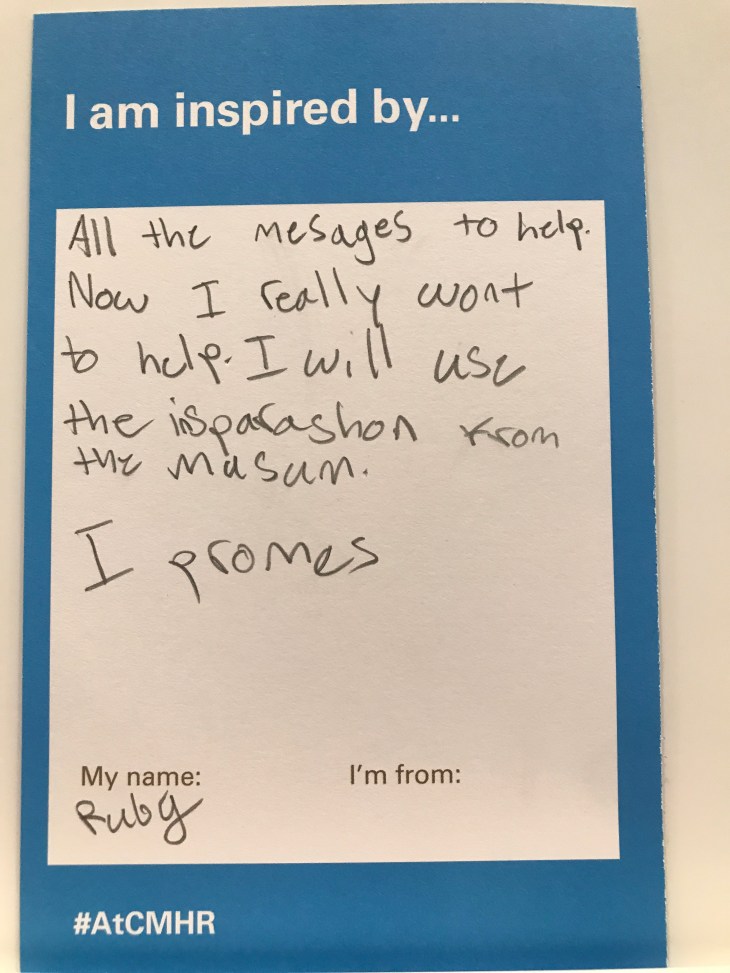 I am inspired by...
All the mesages to help.
Now I really wont
to help. I will use
the insparashon from
the masum.
I promes
My name:
I'm from:
Ruby
#AtCMHR